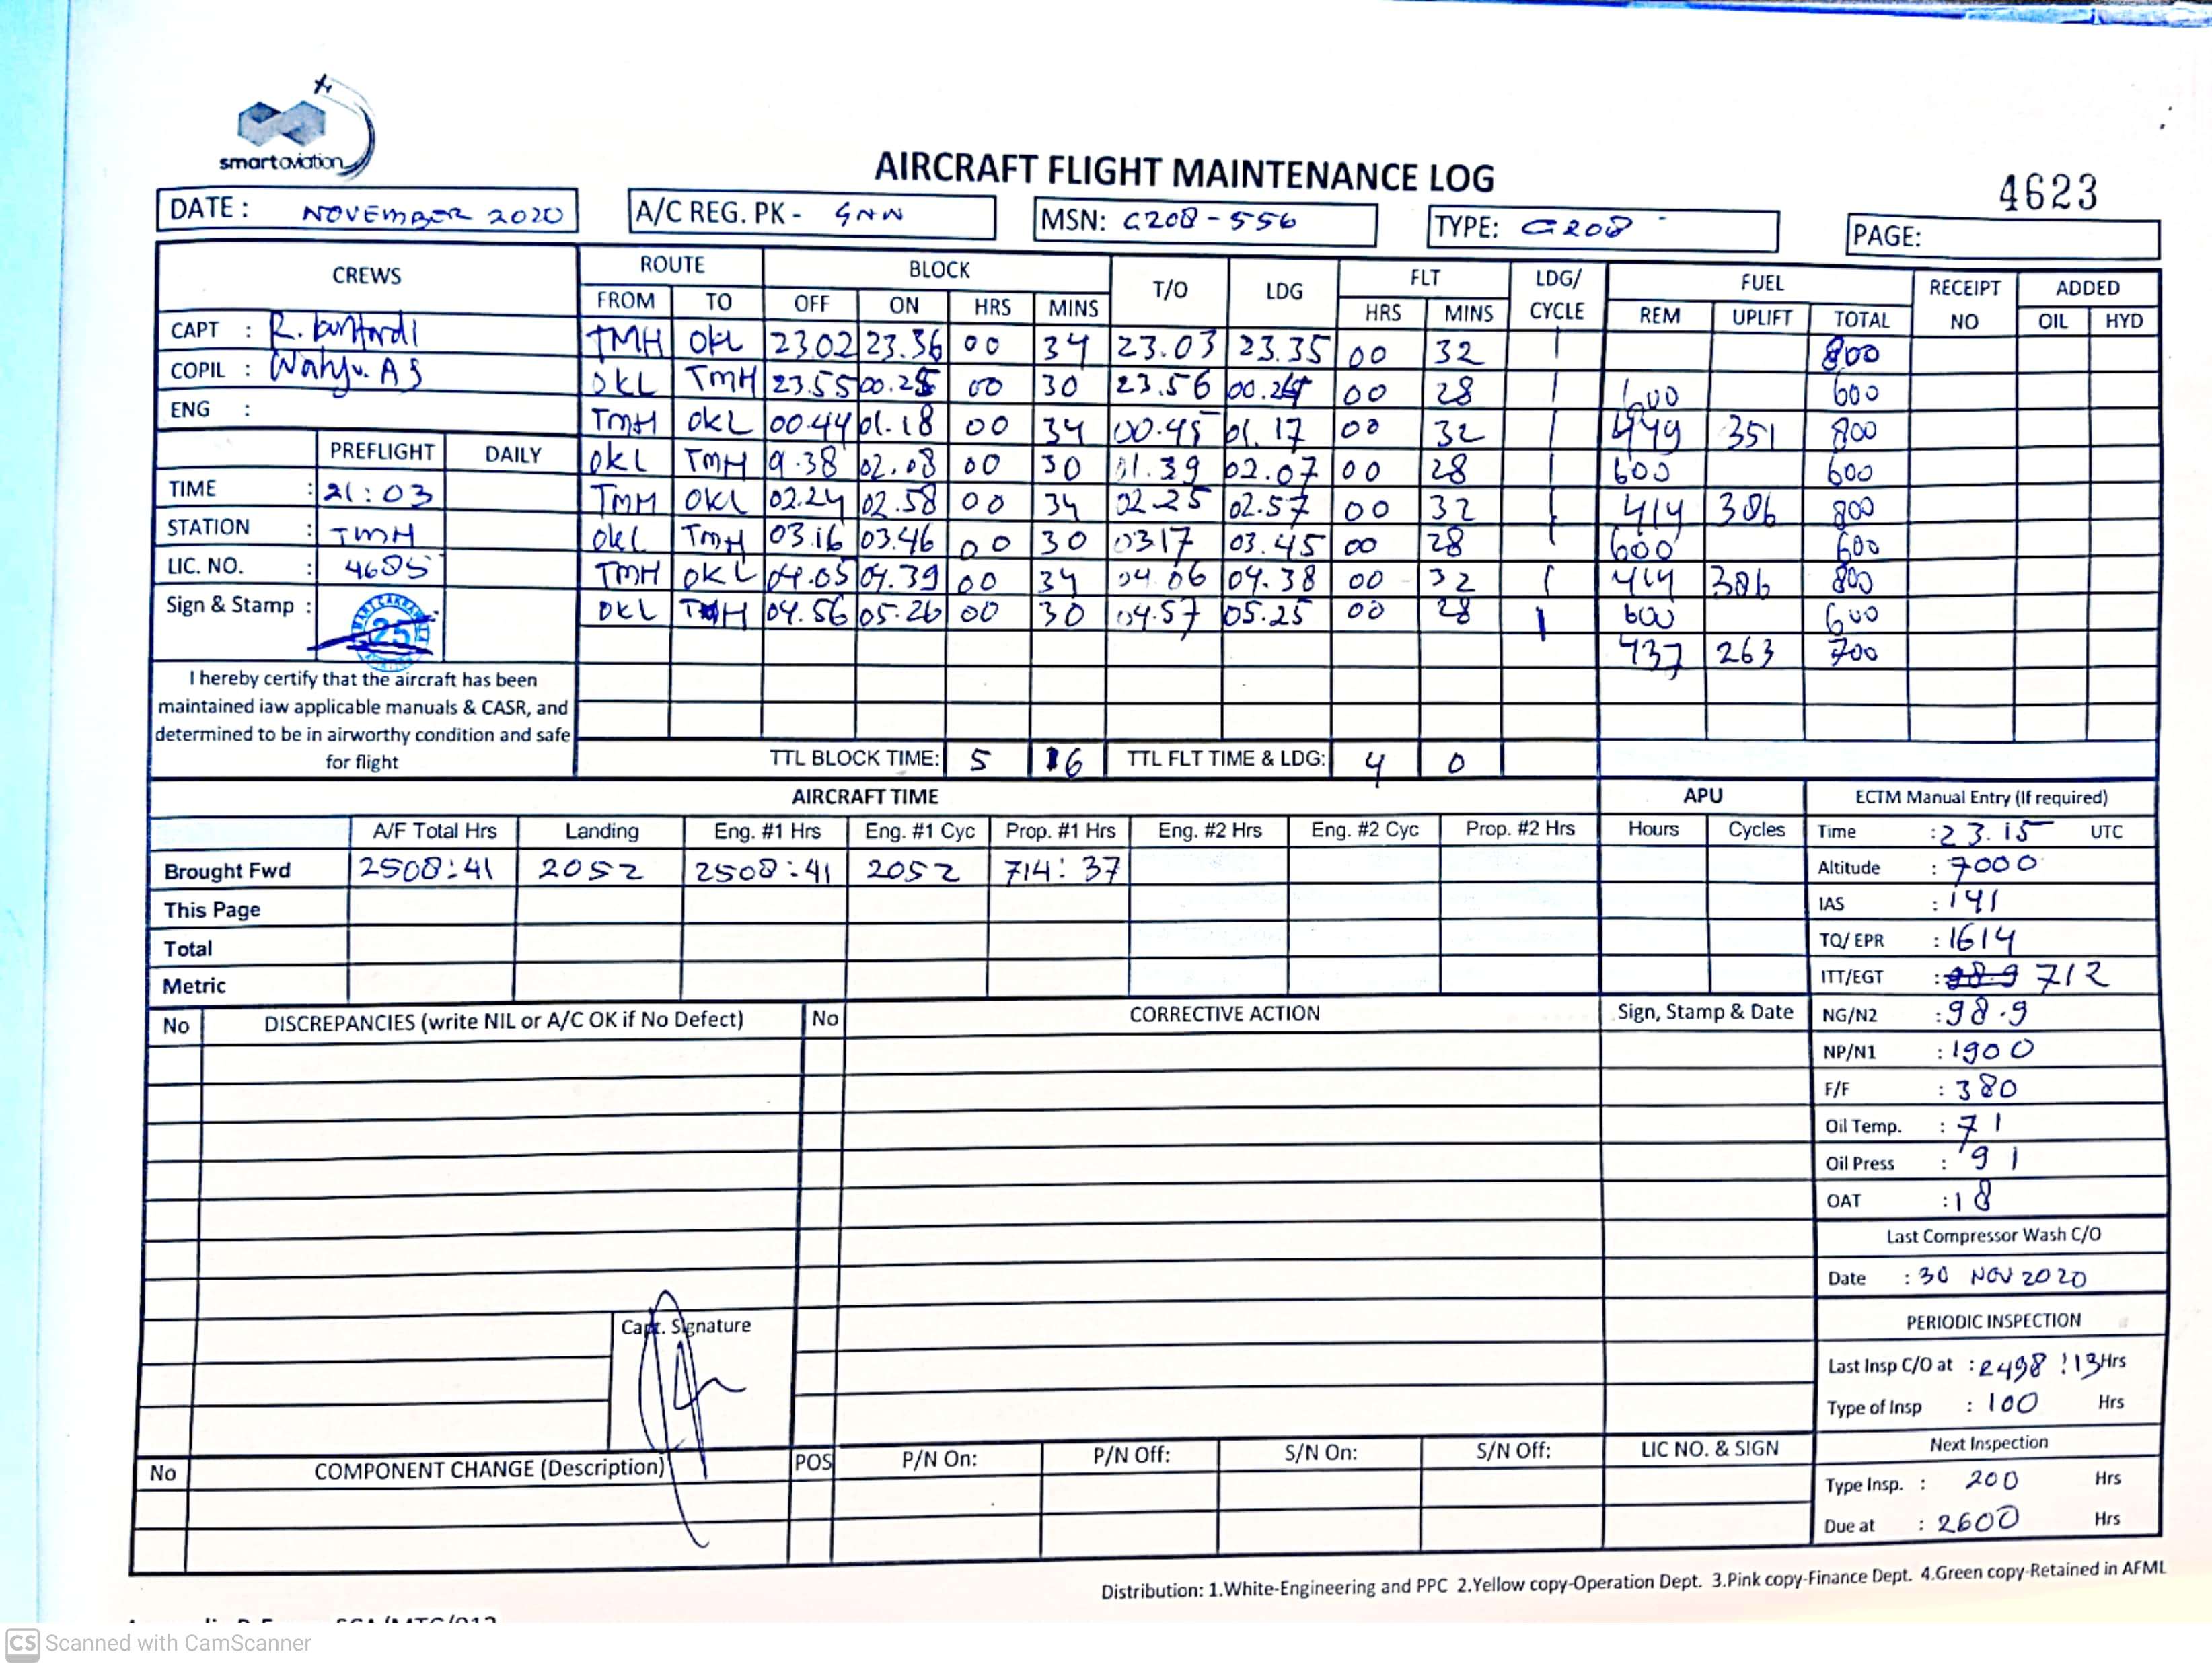 smartaviation
AIRCRAFT FLIGHT MAINTENANCE LOG
4623
DATE : NOVEMBER 2020
A/C REG. PK - GNN
MSN: C208-556
TYPE: C208
PAGE:
CREWS ROUTE BLOCK T/O LDG FLT LDG/ CYCLE FUEL RECEIPT NO ADDED
FROM TO OFF ON HRS MINS HRS MINS REM UPLIFT TOTAL OIL HYD
CAPT : R.
COPIL : Wahyu. AS
ENG :
TMH OKL 23.02 23.36 00 34 23.03 23.35 00 32 1 800
OKL TMH 23.55 00.25 00 30 23.56 00.24 00 28 1 600 600
TMH OKL 00.44 01.18 00 34 00.45 01.17 00 32 1 449 351 800
OKL TMH 02.08 00 30 01.39 02.07 00 28 1 600 600
TMH OKL 02.24 02.58 00 34 02.25 02.57 00 32 1 414 386 800
OKL TMH 03.16 03.46 00 30 03.17 03.45 00 28 1 600 600
TMH OKL 04.05 04.39 00 34 04.06 04.38 00 32 1 414 386 800
OKL TMH 04.56 05.26 00 30 04.57 05.25 00 28 1 600 600
437 263 700
PREFLIGHT DAILY
TIME : 21:03
STATION : TMH
LIC. NO. : 4685
Sign & Stamp :
25
I hereby certify that the aircraft has been
maintained iaw applicable manuals & CASR, and
determined to be in airworthy condition and safe
for flight
TTL BLOCK TIME: 5 16 TTL FLT TIME & LDG: 4 0
AIRCRAFT TIME APU ECTM Manual Entry (If required)
A/F Total Hrs Landing Eng. #1 Hrs Eng. #1 Cyc Prop. #1 Hrs Eng. #2 Hrs Eng. #2 Cyc Prop. #2 Hrs Hours Cycles
Brought Fwd 2508:41 2052 2508:41 2052 714:37
This Page
Total
Metric
Time : 23.15 UTC
Altitude : 7000
IAS : 141
TQ/ EPR : 1614
ITT/EGT : 712
NG/N2 : 98.9
NP/N1 : 1900
F/F : 380
Oil Temp. : 71
Oil Press : 91
OAT : 18
Last Compressor Wash C/O
Date : 30 NOV 2020
PERIODIC INSPECTION
Last Insp C/O at : 2498:13 Hrs
Type of Insp : 100 Hrs
Next Inspection
Type Insp. : 200 Hrs
Due at : 2600 Hrs
No DISCREPANCIES (write NIL or A/C OK if No Defect) No CORRECTIVE ACTION Sign, Stamp & Date
Capt. Signature
No COMPONENT CHANGE (Description) POS P/N On: P/N Off: S/N On: S/N Off: LIC NO. & SIGN
Distribution: 1.White-Engineering and PPC 2.Yellow copy-Operation Dept. 3.Pink copy-Finance Dept. 4.Green copy-Retained in AFML
CS Scanned with CamScanner